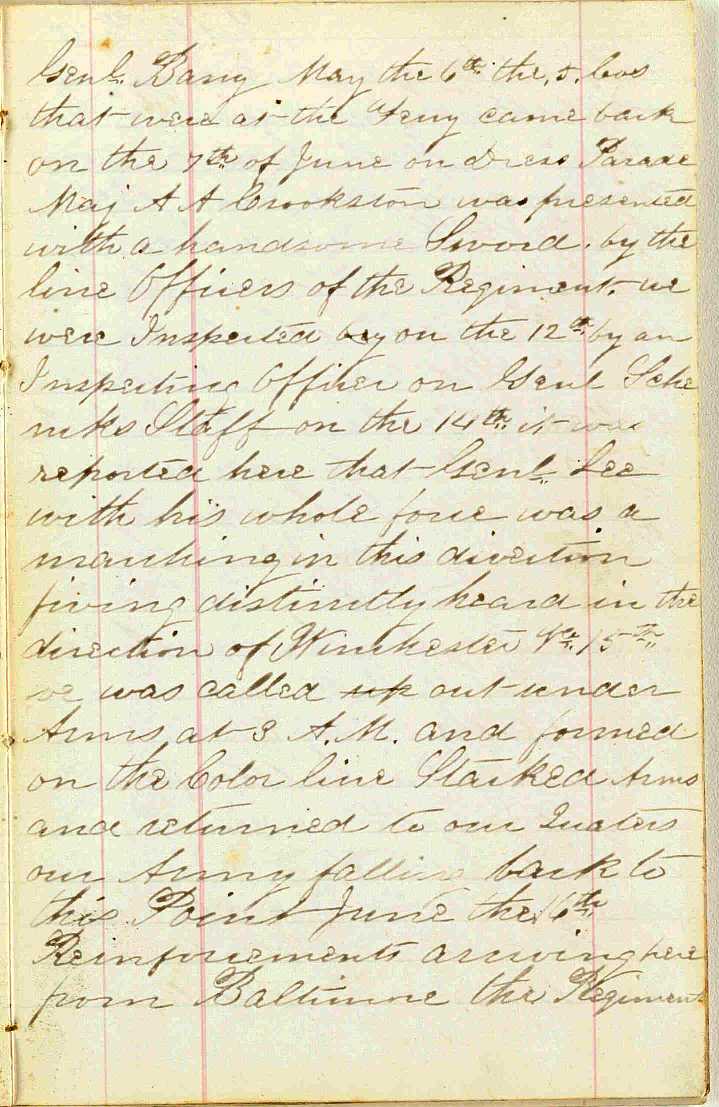 Genl. Barry May the 6th the, 5, Cos
that were at the Ferry came back
on the 7th of June on Dress Parade
Maj A A Crookston was presented
with a handsome Sword. by the
line Officers of the Regiment. we
were Inspected by on the 12th by an
Inspecting Officer on Genl Sche
nks Staff on the 14th it was
reported here that Genl. Lee
with his whole force was a
marching in this direction
firing distinctly heard in the
direction of Winchester 15th
we was called up out under
Arms at 3 A.M. and formed
on the Color line Stacked Arms
and returned to our Quaters
our Army falling back to
this Point June the 16th
Reinforcements arriving here
from Baltimore the Regiment